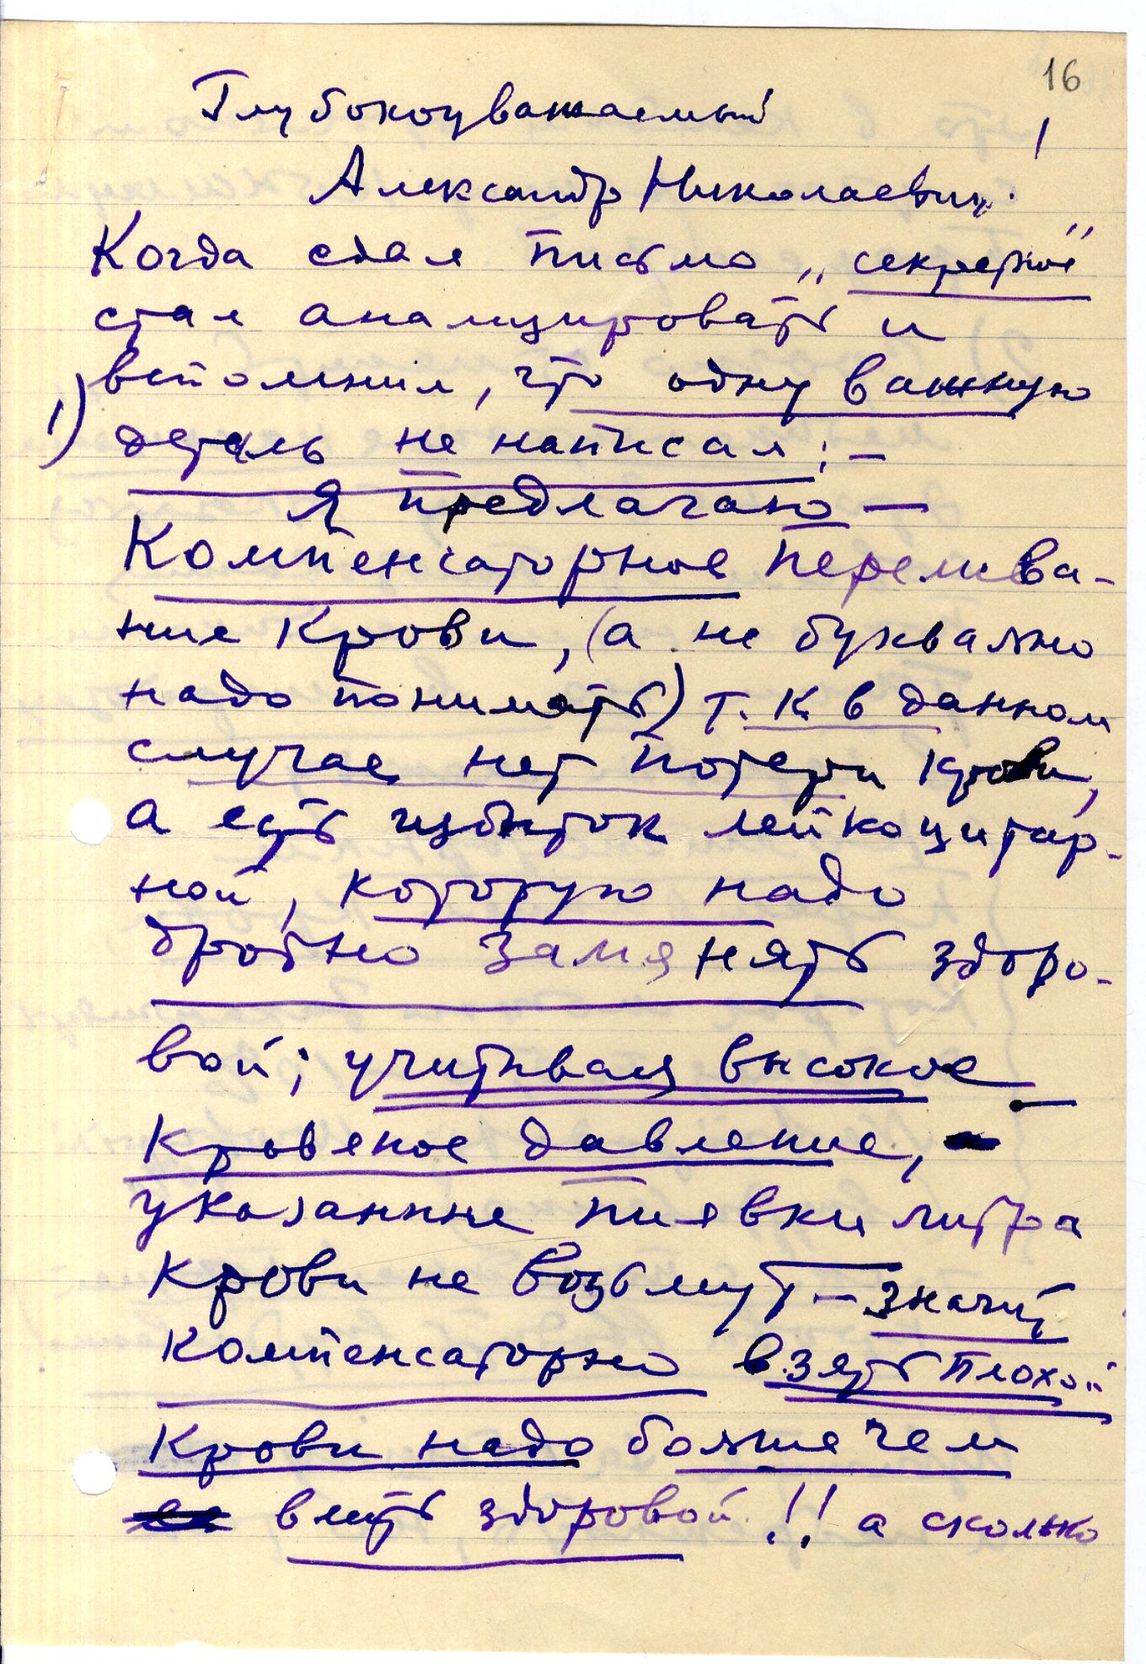 16
Глубокоуважаемый
Александр Николаевич!
Когда сдал письмо „секретное"
стал анализировать и
вспомнил, что одну важную
1) деталь не написал: –
Я предлагаю –
Компенсаторное перелива-
ние крови, (а не буквально
надо понимать) т.к. в данном
случае нет потери крови,
а есть избыток лейкоцитар-
ной, которую надо
дробно заменять здоро-
вой; учитывая высокое
кровяное давление,
указанные пиявки литра
крови не возьмут – значит
компенсаторно взять плохой
крови надо больше чем
влить здоровой!! а сколько